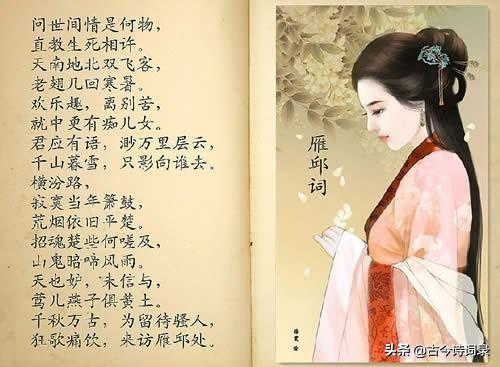 问世间情是何物，
直教生死相许。
天南地北双飞客，
老翅几回寒暑。
欢乐趣，离别苦，
就中更有痴儿女。
君应有语，渺万里层云，
千山暮雪，只影向谁去。
横汾路，
寂寞当年箫鼓，
荒烟依旧平楚。
招魂楚些何嗟及，
山鬼暗啼风雨。
天也妒，未信与，
莺儿燕子俱黄土。
千秋万古，为留待骚人，
狂歌痛饮，来访雁邱处。
雁邱词
头条@古今诗词录